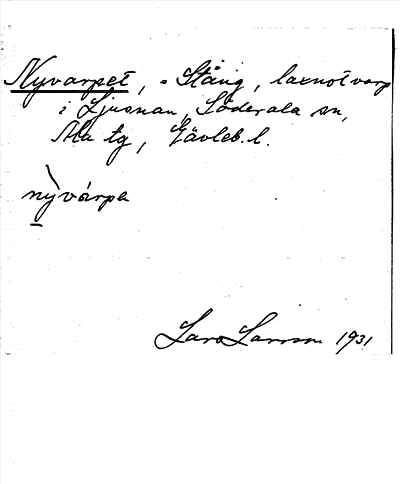 Nyvarpet, = Stång, laxnotvarp
i Ljusnan, Söderala sn,
Ala tg, Gävleb. l.
nỳvárpa
Lars Larsson 1931